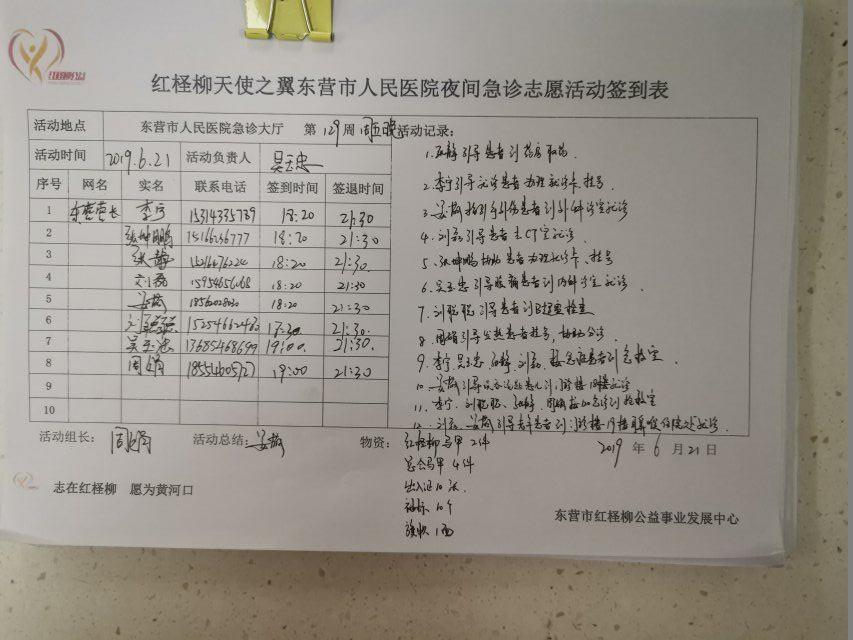 红柽柳天使之翼东营市人民医院夜间急诊志愿活动签到表
活动地点 东营市人民医院急诊大厅 第129周周五晚 活动记录:
活动时间 2019.6.21 活动负责人 吴玉忠
序号 网名 实名 联系电话 签到时间 签退时间
1 东营营长 李宁 15314335739 18:20 21:30
2 张坤鹏 15166256777 18:20 21:30
3 18:20 21:30
4 刘磊 18:20 21:30
5 18:20 21:30
6 刘聪聪 17:30 21:30
7 吴玉忠 13685468699 19:00 21:30
8 周娟 18554605727 19:00 21:30
9
10
1.引导患者到药房取药
2.李宁引导就诊患者办理就诊卡、挂号
3.指引手外伤患者到外科诊室就诊
4.刘磊引导患者去CT室就诊
5.张坤鹏协助患者办理就诊卡、挂号
6.吴玉忠引导腹痛患者到内科诊室就诊
7.刘聪聪引导患者到B超室检查
8.周娟引导发热患者挂号,协助分诊
9.李宁 吴玉忠 刘磊 接急症患者到抢救室
10.引导患儿到门诊楼就诊
11.李宁、刘聪聪、周娟接120急诊到抢救室
12.刘磊、引导老年患者到门诊楼就诊
活动组长: 周娟 活动总结: 物资: 红柽柳马甲2件
总会马甲4件
出入证10张
袖标10个
旗帜1面
2019年6月21日
志在红柽柳 愿为黄河口
东营市红柽柳公益事业发展中心